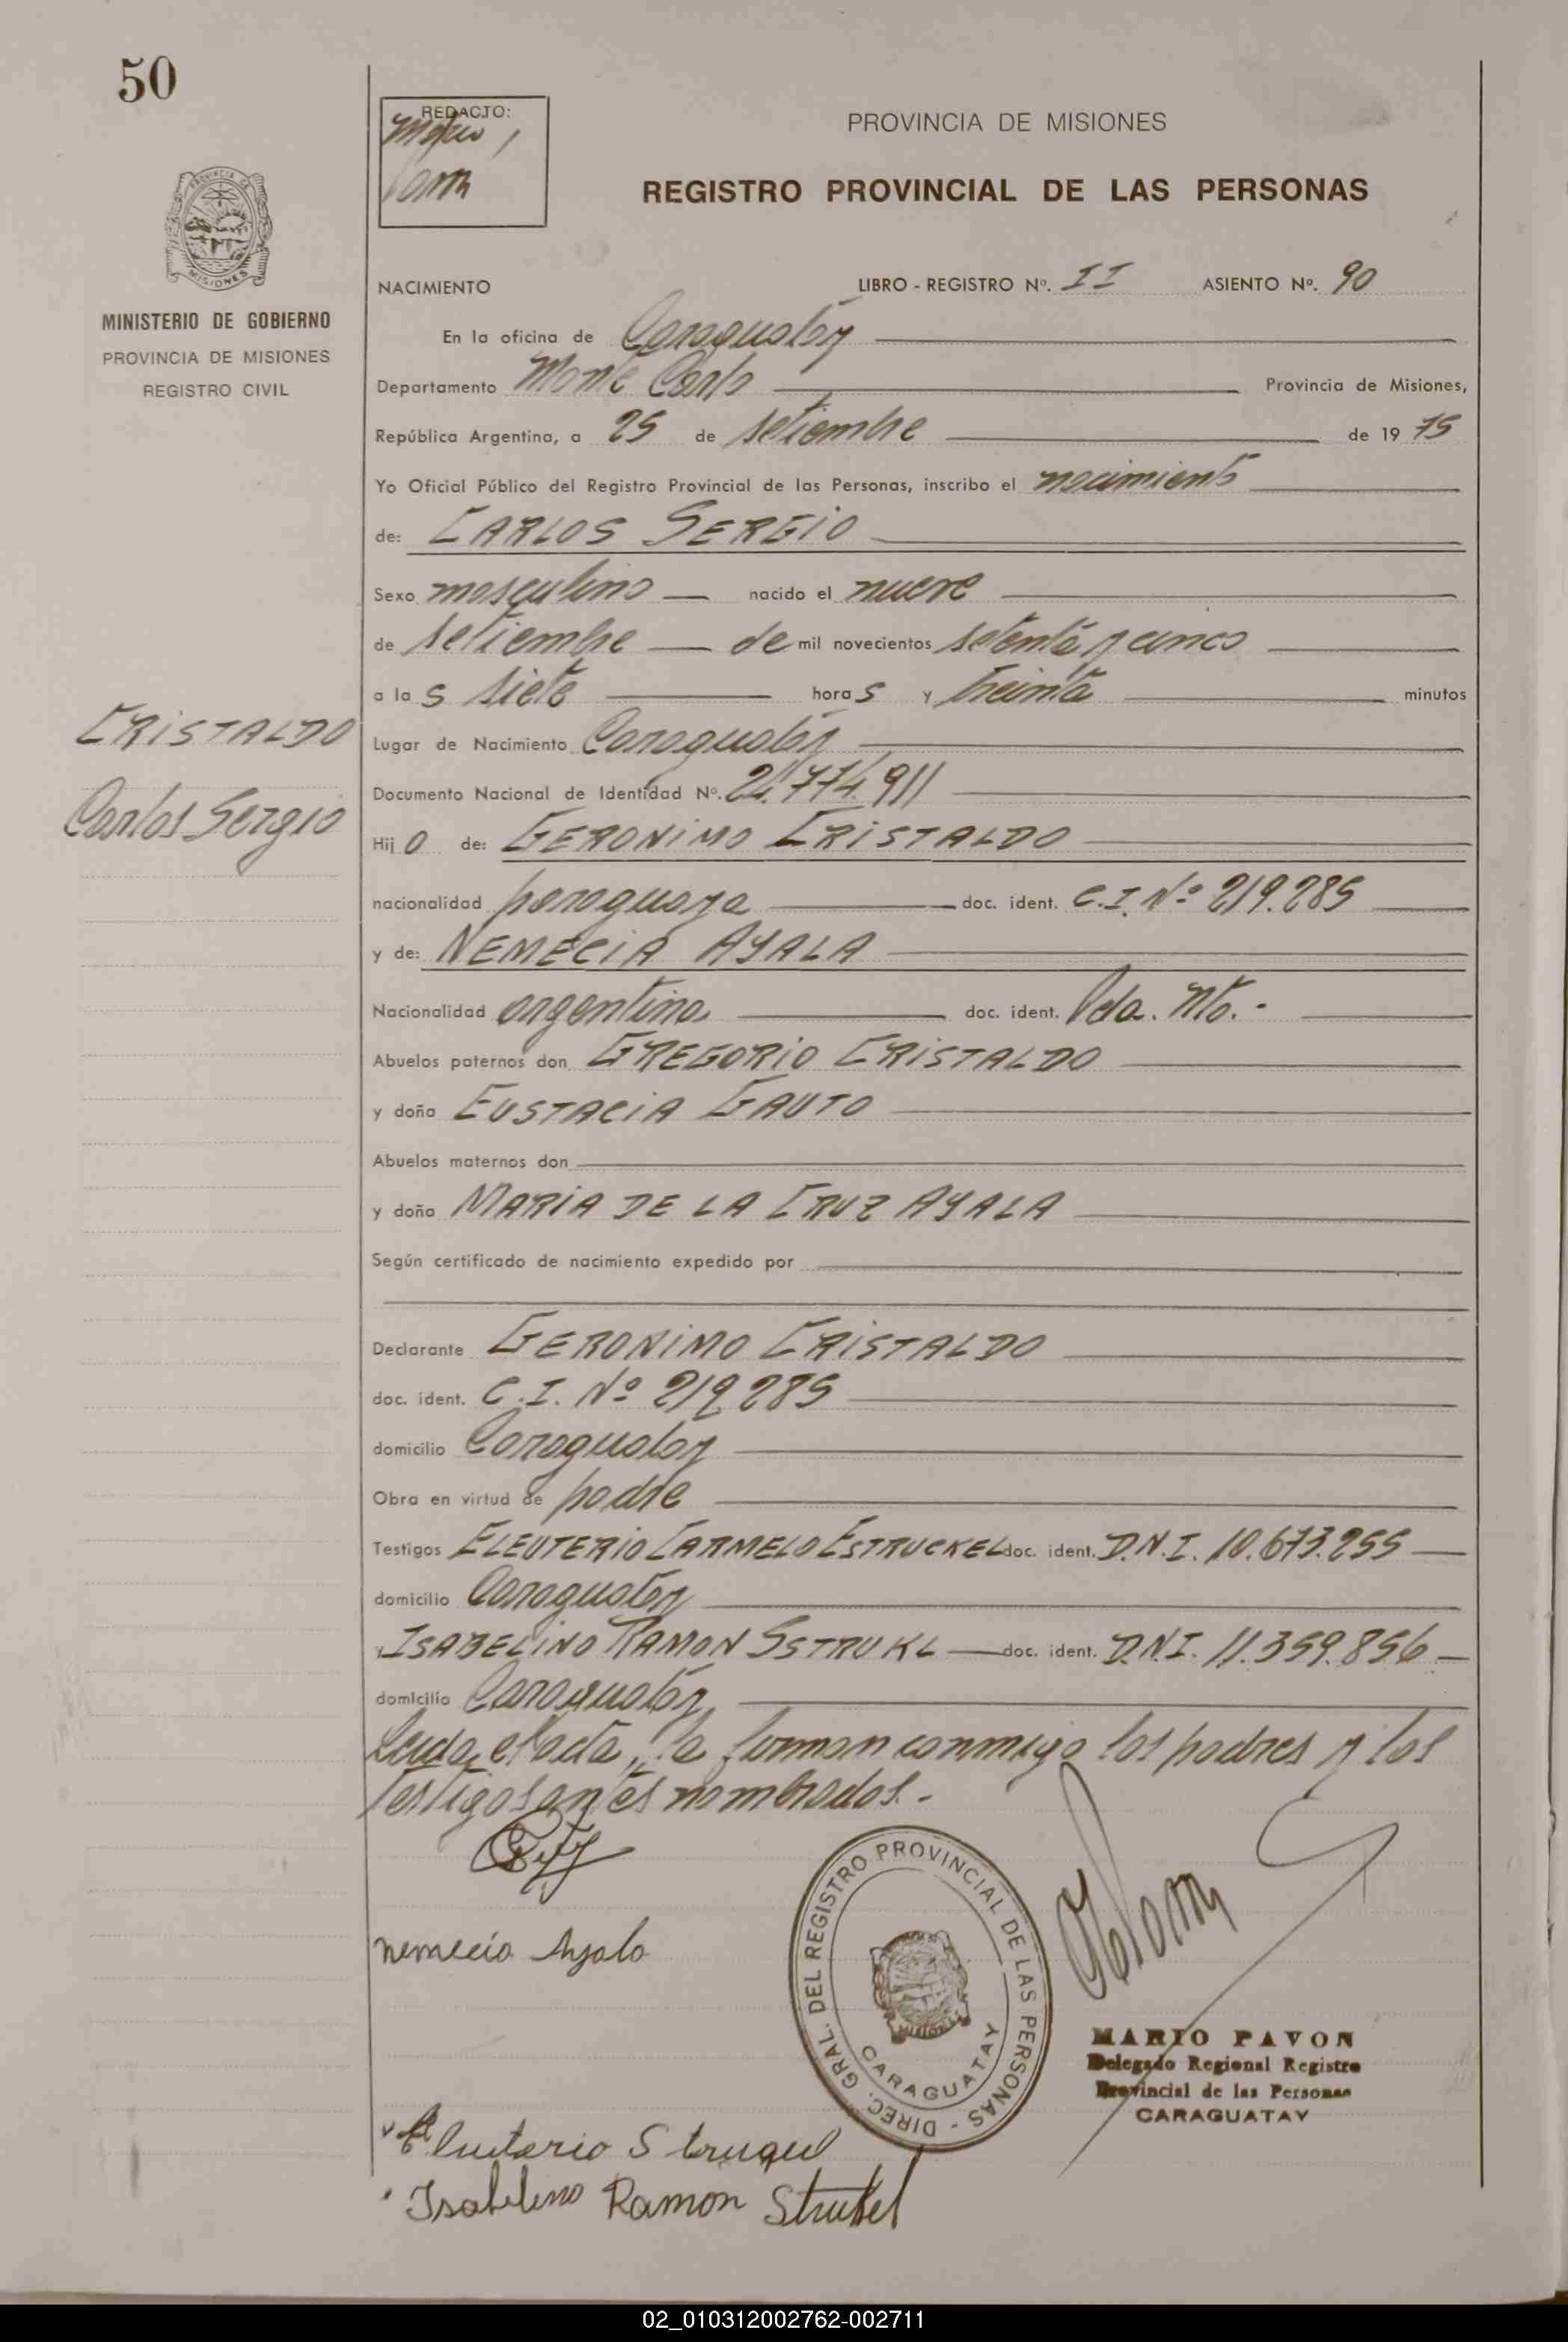 50
REDACTO:
PROVINCIA DE MISIONES
REGISTRO PROVINCIAL DE LAS PERSONAS
PROVINCIA DE
MISIONES
MINISTERIO DE GOBIERNO
PROVINCIA DE MISIONES
REGISTRO CIVIL
NACIMIENTO LIBRO - REGISTRO Nº. II ASIENTO Nº. 90
En la oficina de Caraguatay
Departamento Monte Carlo Provincia de Misiones,
República Argentina, a 25 de setiembre de 19 75
Yo Oficial Público del Registro Provincial de las Personas, inscribo el nacimiento
de: CARLOS SERGIO
Sexo masculino nacido el nueve
de setiembre de mil novecientos setenta y cinco
a la s siete hora s y treinta minutos
CRISTALDO
Carlos Sergio
Lugar de Nacimiento Caraguatay
Documento Nacional de Identidad Nº. 24.774.911
Hij o de: GERONIMO CRISTALDO
nacionalidad paraguaya doc. ident. C.I. Nº 219.285
y de: NEMECIA AYALA
Nacionalidad argentina doc. ident. Pda. Nto.-
Abuelos paternos don GREGORIO CRISTALDO
y doña EUSTACIA GAUTO
Abuelos maternos don
y doña MARIA DE LA CRUZ AYALA
Según certificado de nacimiento expedido por
Declarante GERONIMO CRISTALDO
doc. ident. C.I. Nº 219285
domicilio Caraguatay
Obra en virtud de padre
Testigos ELEUTERIO CARMELO ESTRUCKEL doc. ident. D.N.I. 10.673.255
domicilio Caraguatay
y ISABELINO RAMON SSTRUKL doc. ident. D.N.I. 11.359.856
domicilio Caraguatay
Leida el acta, la firman conmigo los padres y los
testigos antes nombrados.-
nemecia Ayala
DIREC. GRAL. DEL REGISTRO PROVINCIAL DE LAS PERSONAS -
MISIONES
CARAGUATAY
MARIO PAVON
Delegado Regional Registro
Provincial de las Personas
CARAGUATAY
Eluterio Struquel
Isabelino Ramon Strukel
02_010312002762-002711